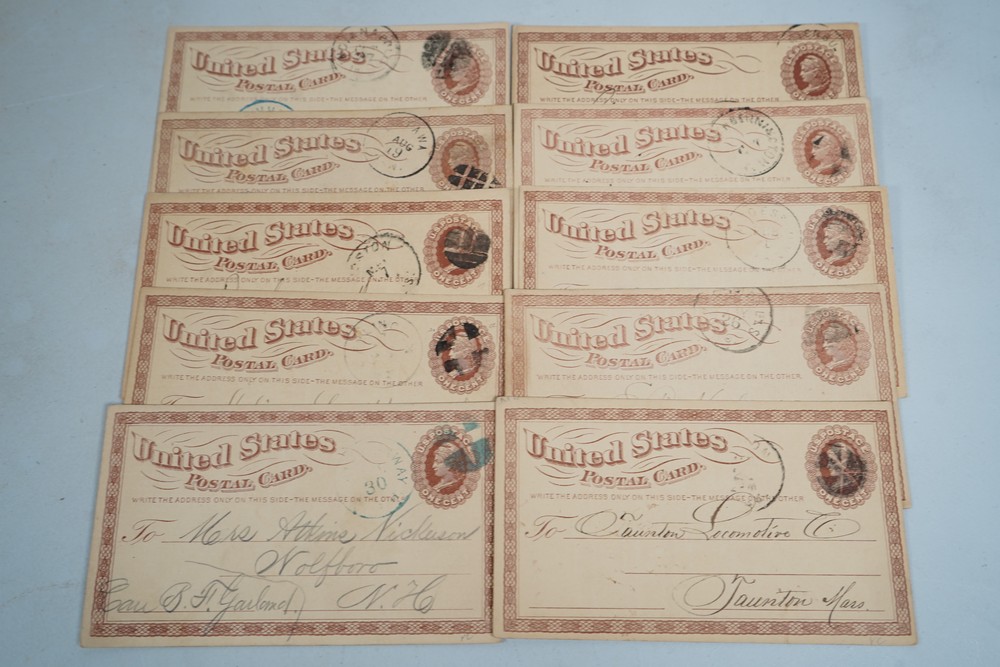 United States
POSTAL CARD.
WRITE THE ADDRESS ONLY ON THIS SIDE - THE MESSAGE ON THE OTHER
ONE CENT
United States
POSTAL CARD.
WRITE THE ADDRESS ONLY ON THIS SIDE - THE MESSAGE ON THE OTHER
ONE CENT
United States
POSTAL CARD.
WRITE THE ADDRESS ONLY ON THIS SIDE - THE MESSAGE ON THE OTHER.
AUG
19
United States
POSTAL CARD.
WRITE THE ADDRESS ONLY ON THIS SIDE - THE MESSAGE ON THE OTHER.
United States
POSTAL CARD.
WRITE THE ADDRESS ONLY ON THIS SIDE - THE MESSAGE ON THE OTHER
U.S. POSTAGE
ONE CENT
7
United States
POSTAL CARD.
WRITE THE ADDRESS ONLY ON THIS SIDE - THE MESSAGE ON THE OTHER.
ONE CENT
United States
POSTAL CARD.
WRITE THE ADDRESS ONLY ON THIS SIDE - THE MESSAGE ON THE OTHER.
U.S. POSTAGE
ONE CENT
United States
POSTAL CARD.
WRITE THE ADDRESS ONLY ON THIS SIDE - THE MESSAGE ON THE OTHER.
26
ONE CENT
United States
POSTAL CARD.
WRITE THE ADDRESS ONLY ON THIS SIDE - THE MESSAGE ON THE OTHER
30
U.S. POSTAGE
ONE CENT
To Mrs Atkins Nickerson
Wolfboro
Care B. F. Garland) N. H
United States
POSTAL CARD.
WRITE THE ADDRESS ONLY ON THIS SIDE - THE MESSAGE ON THE OTHER
U.S. POSTAGE
ONE CENT
To Taunton Locomotive Co
Taunton Mass.